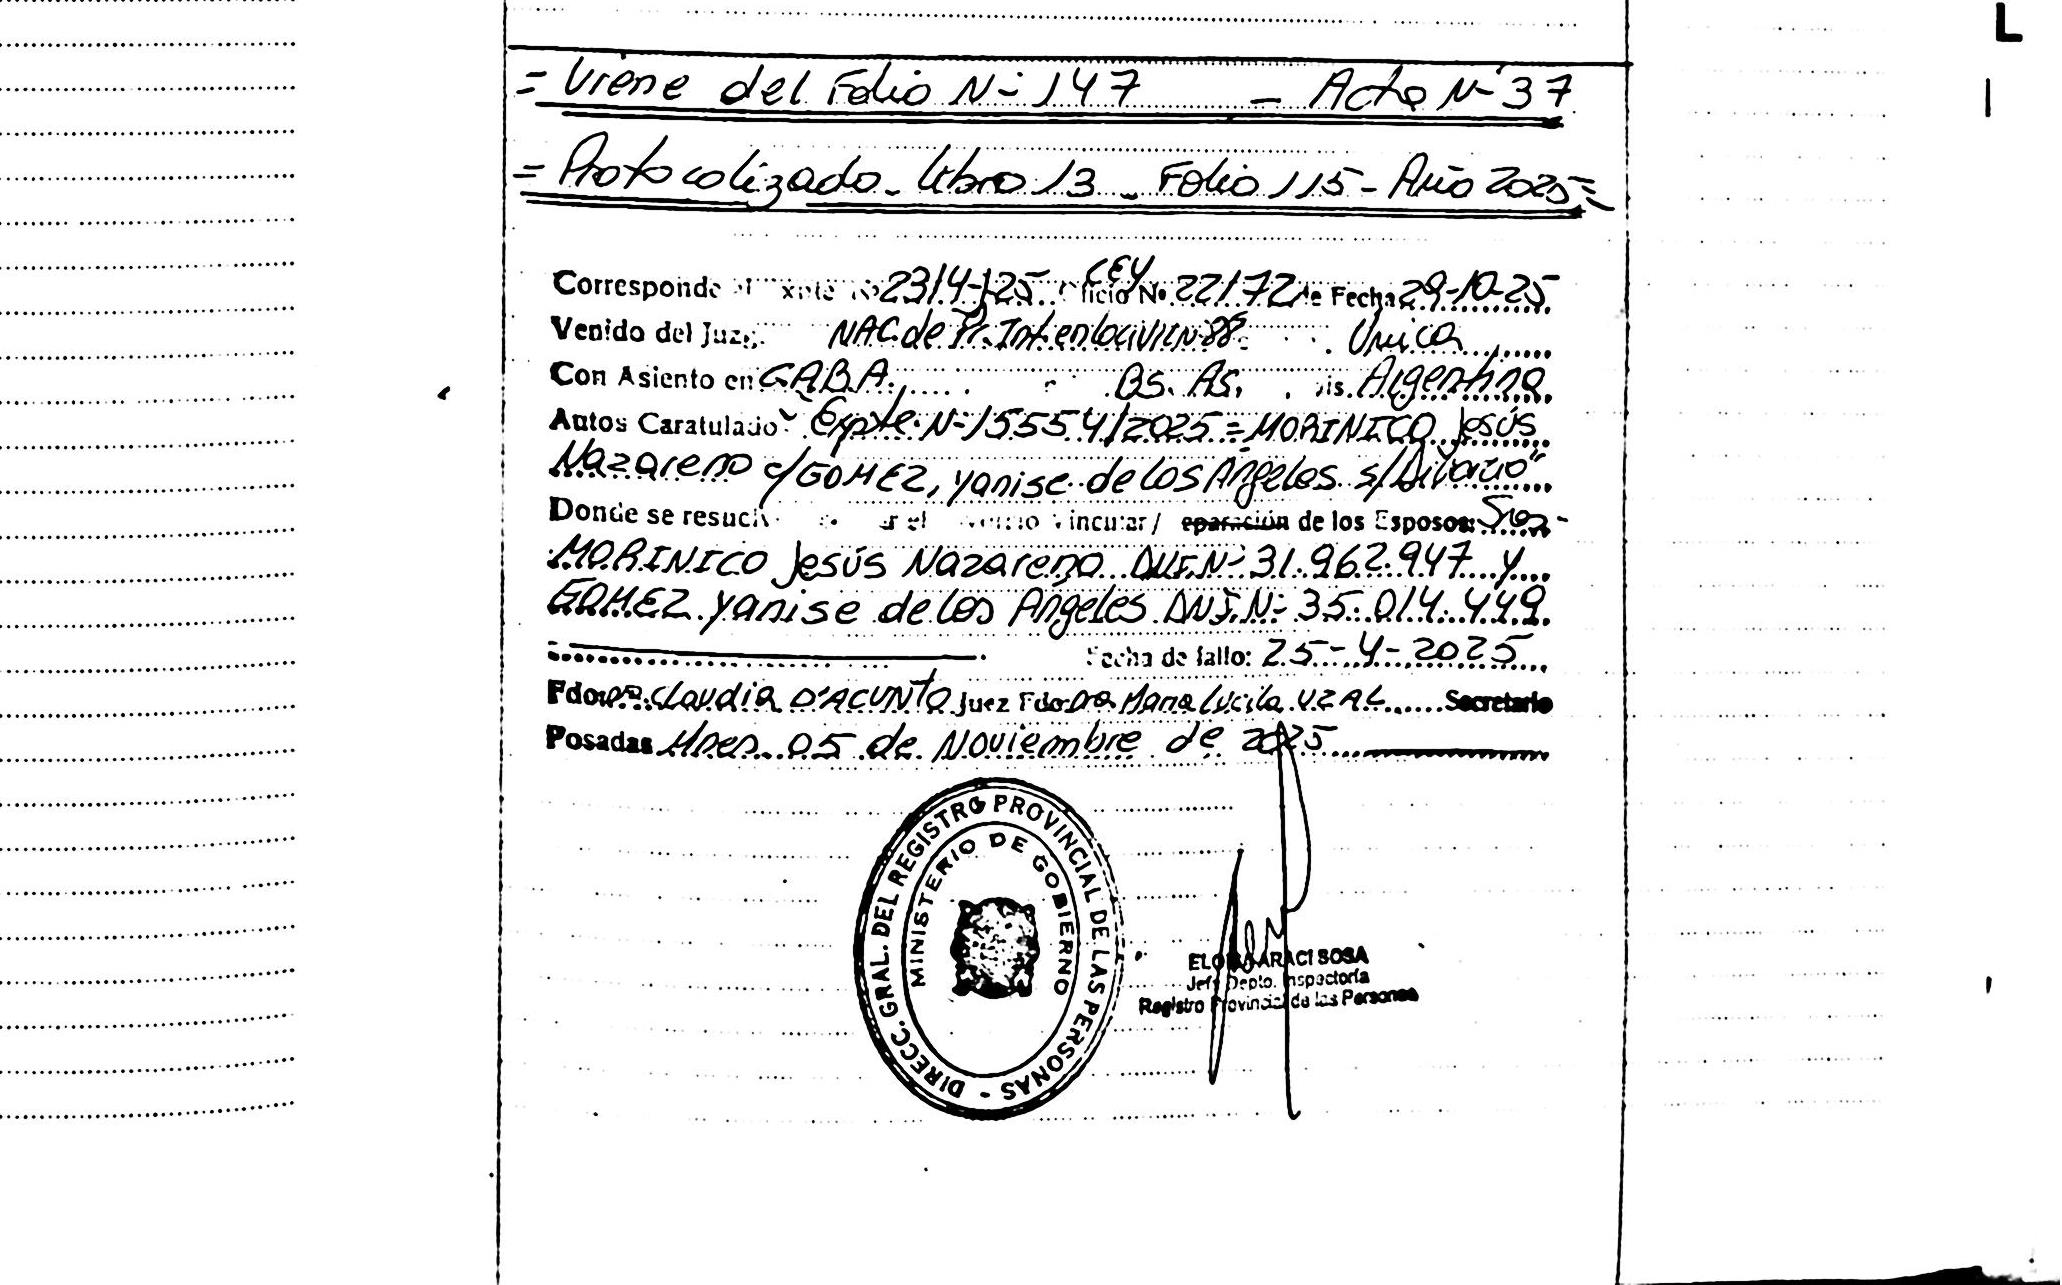 = Viene del Folio N- 147 - Acta N- 37
= Protocolizado - Libro 13 - Folio 115 - Año 2025 =
Corresponde 2314-/25 LEY 22172 de Fecha 29-10-25
Venido del Juz. NAC. de Pr. Int. en lo Civil N- 88 Única
Con Asiento en C.A.B.A. Bs. As. Argentina
Autos Caratulado "Expte. N- 15554/2025 = MORINICO Jesús
Nazareno c/ GOMEZ, yanise de los Ángeles s/ Divorcio"
Donde se resuel Vincular / eparación de los Esposos: Sres-
MORINICO Jesús Nazareno DNI. N- 31.962.947 y
GOMEZ yanise de los Ángeles DNI. N- 35.014.449.
Fecha de fallo: 25-4-2025
Fdo. Dra. Claudia D'ACUNTO Juez Fdo. Dra. María Lucila UZAL Secretario
Posadas Mnes. 05 de Noviembre de 2025
DIRECC. GRAL. DEL REGISTRO PROVINCIAL DE LAS PERSONAS -
MINISTERIO DE GOBIERNO
ARACI SOSA
Jefe Depto. Inspectoría
Registro Provincial de las Personas